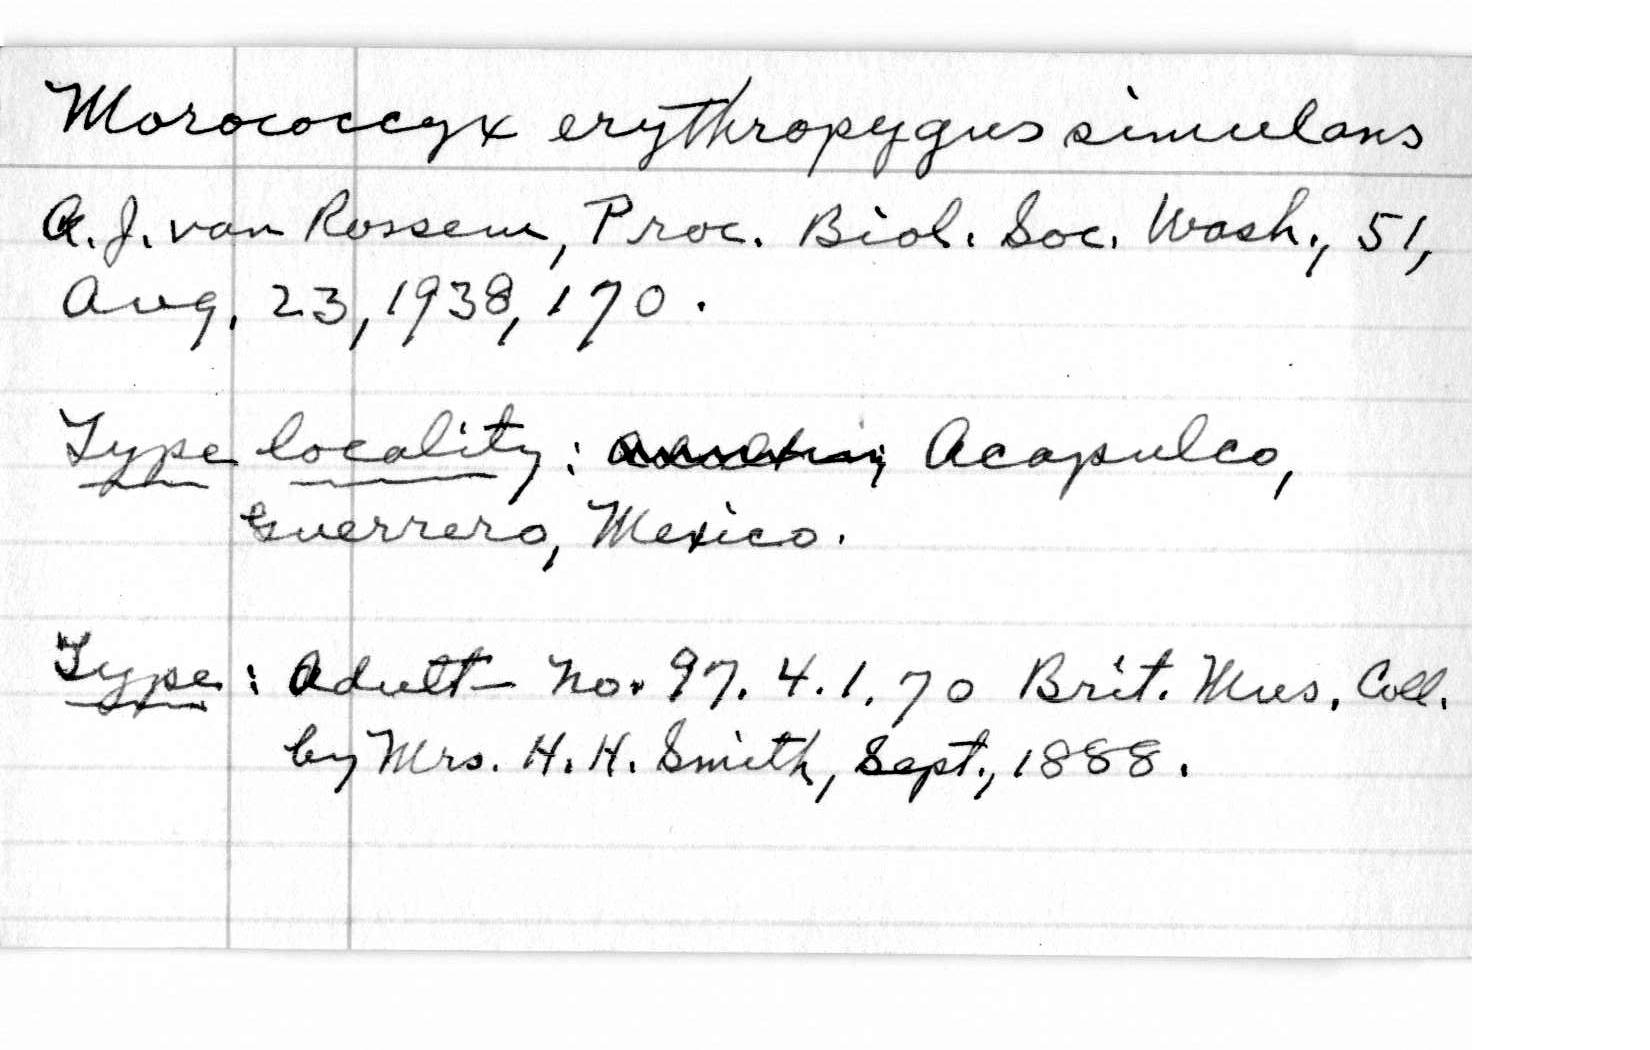 Morococcyx erythropygus simulans
A. J. van Rossem, Proc. Biol. Soc. Wash., 51,
Aug. 23, 1938, 170.
Type locality: Acapulco,
Guerrero, Mexico.
Type: Adult No. 97.4.1.70 Brit. Mus. Coll.
by Mrs. H. H. Smith, Sept., 1888.